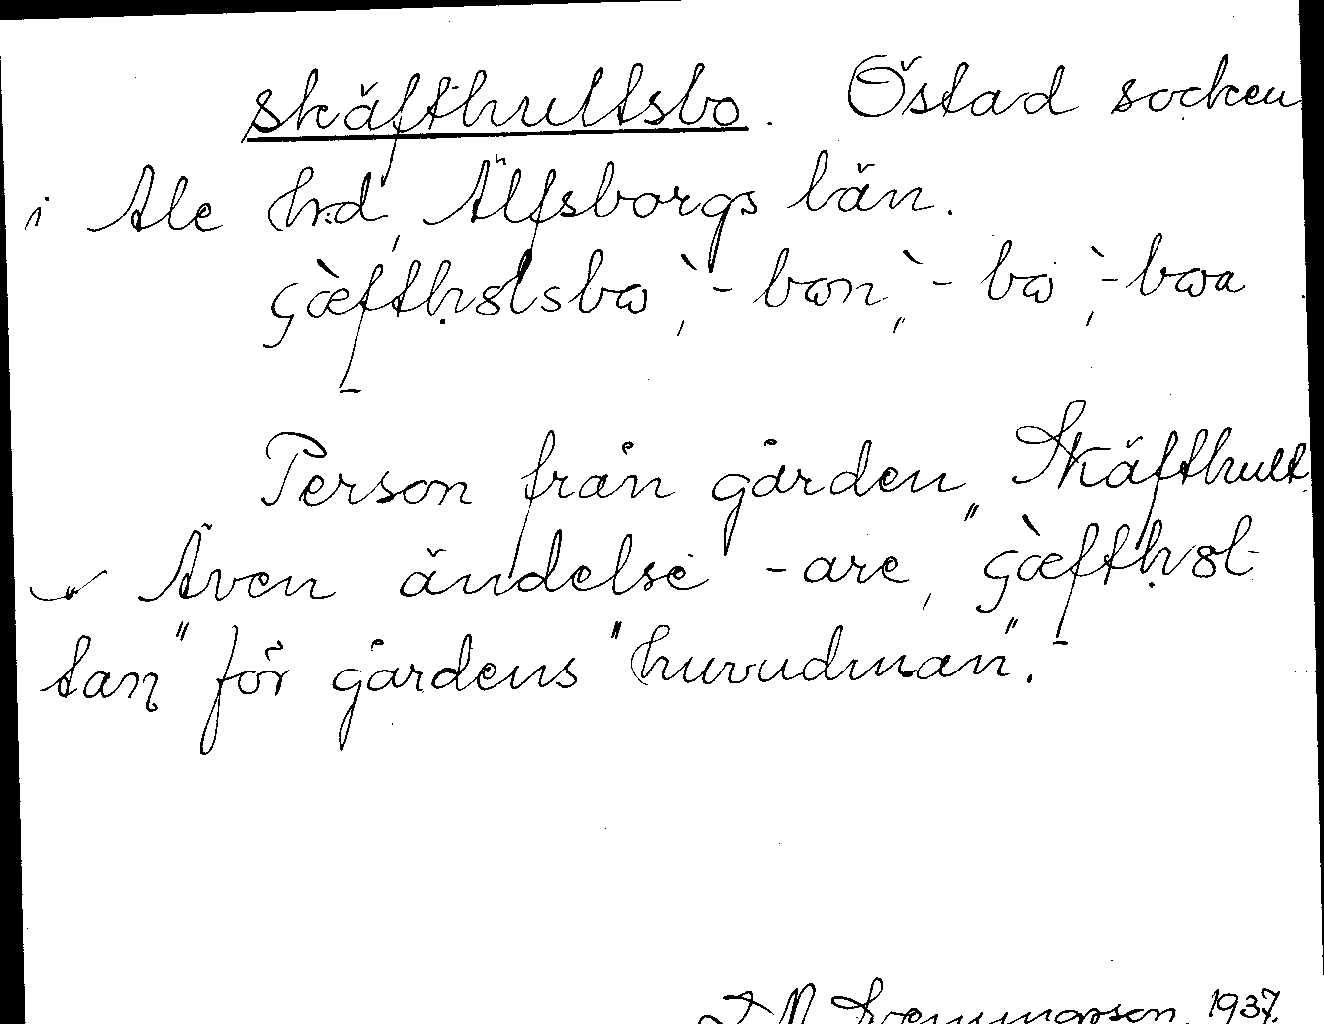 skäfthultsbo. Östad socken
i Ale hd, Älfsborgs län.
çæ̀fthɷltsbɷ, -bɷn, -bɷ, -bɷa
Person från gården Skäfthult
Även ändelse -are, "çæ̀fthɷl-
tan" för gårdens "huvudman".
1937.